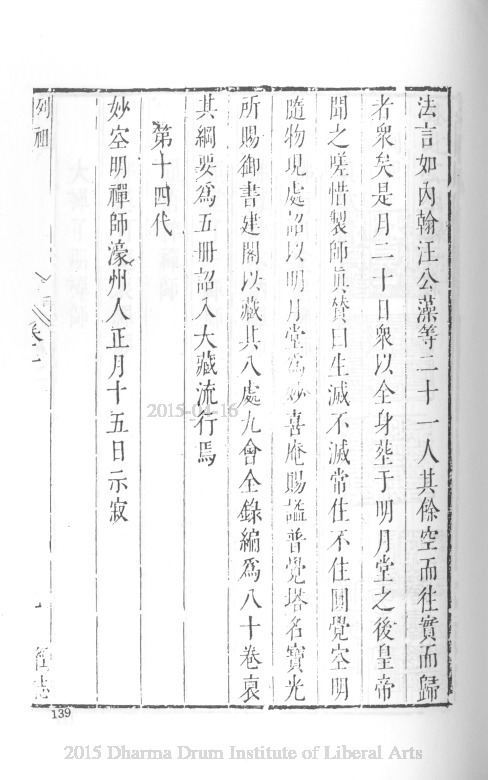 法言如內翰汪公藻等二十一人其餘空而往實而歸
者衆矣是月二十日衆以全身塟于明月堂之後皇帝
聞之嗟惜製師眞贊曰生滅不滅常住不住圓覺空明
隨物現處詔以明月堂爲妙喜庵賜謚普覺塔名寶光
所賜御書建閣以藏其八處九會全錄編爲八十卷裒
其綱要爲五冊詔入大藏流行焉
第十四代
妙空明禪師濠州人正月十五日示寂
列祖
卷二
徑志
139
2015-04-16
2015 Dharma Drum Institute of Liberal Arts